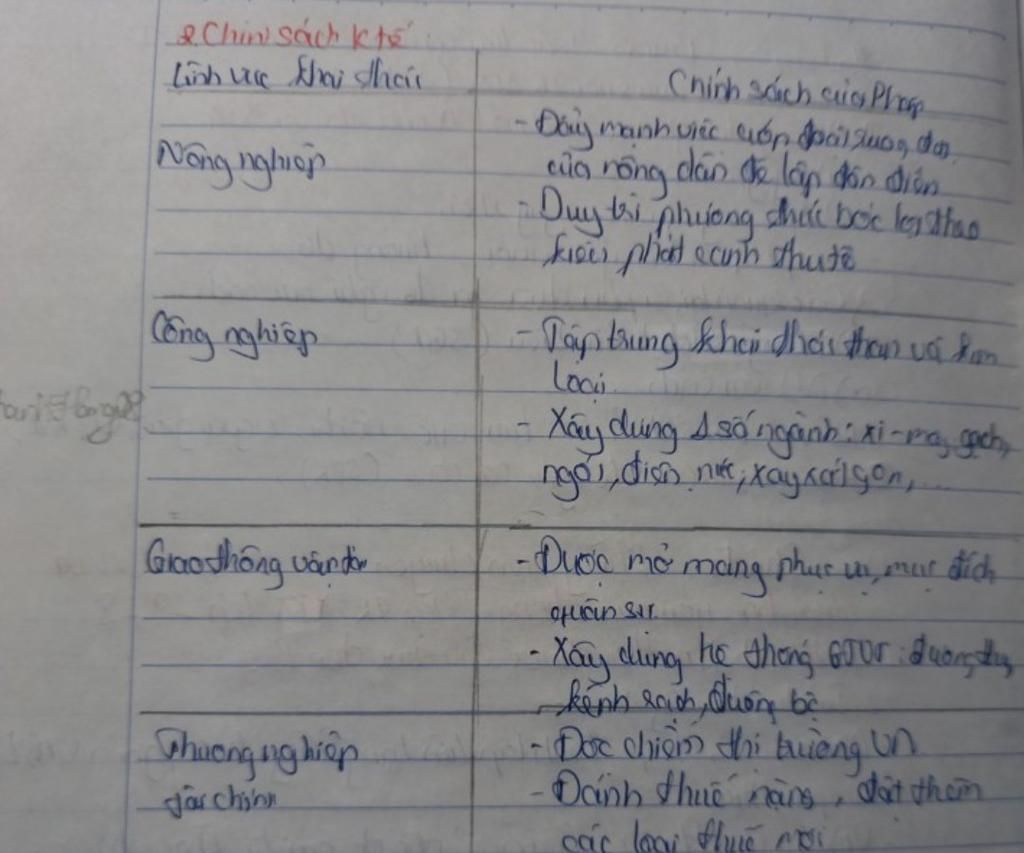 2. Chính sách k tế
Lĩnh vực khai thác
Chính sách của Pháp
Nông nghiệp
- Đẩy mạnh việc cướp đoạt ruộng đất
của nông dân để lập đồn điền
- Duy trì phương thức bóc lột theo
kiểu phát canh thu tô
Công nghiệp
- Tập trung khai thác than và kim
loại
- Xây dựng 1 số ngành: xi-mg, gạch,
ngói, điện, nước, xay xát gạo,...
Giao thông vận tải
- Được mở mang phục vụ mục đích
quân sự
- Xây dựng hệ thống GTVT: đường
kênh rạch, đường bộ
Thương nghiệp
tài chính
- Độc chiếm thị trường VN
- Đánh thuế nặng, đặt thêm
các loại thuế mới